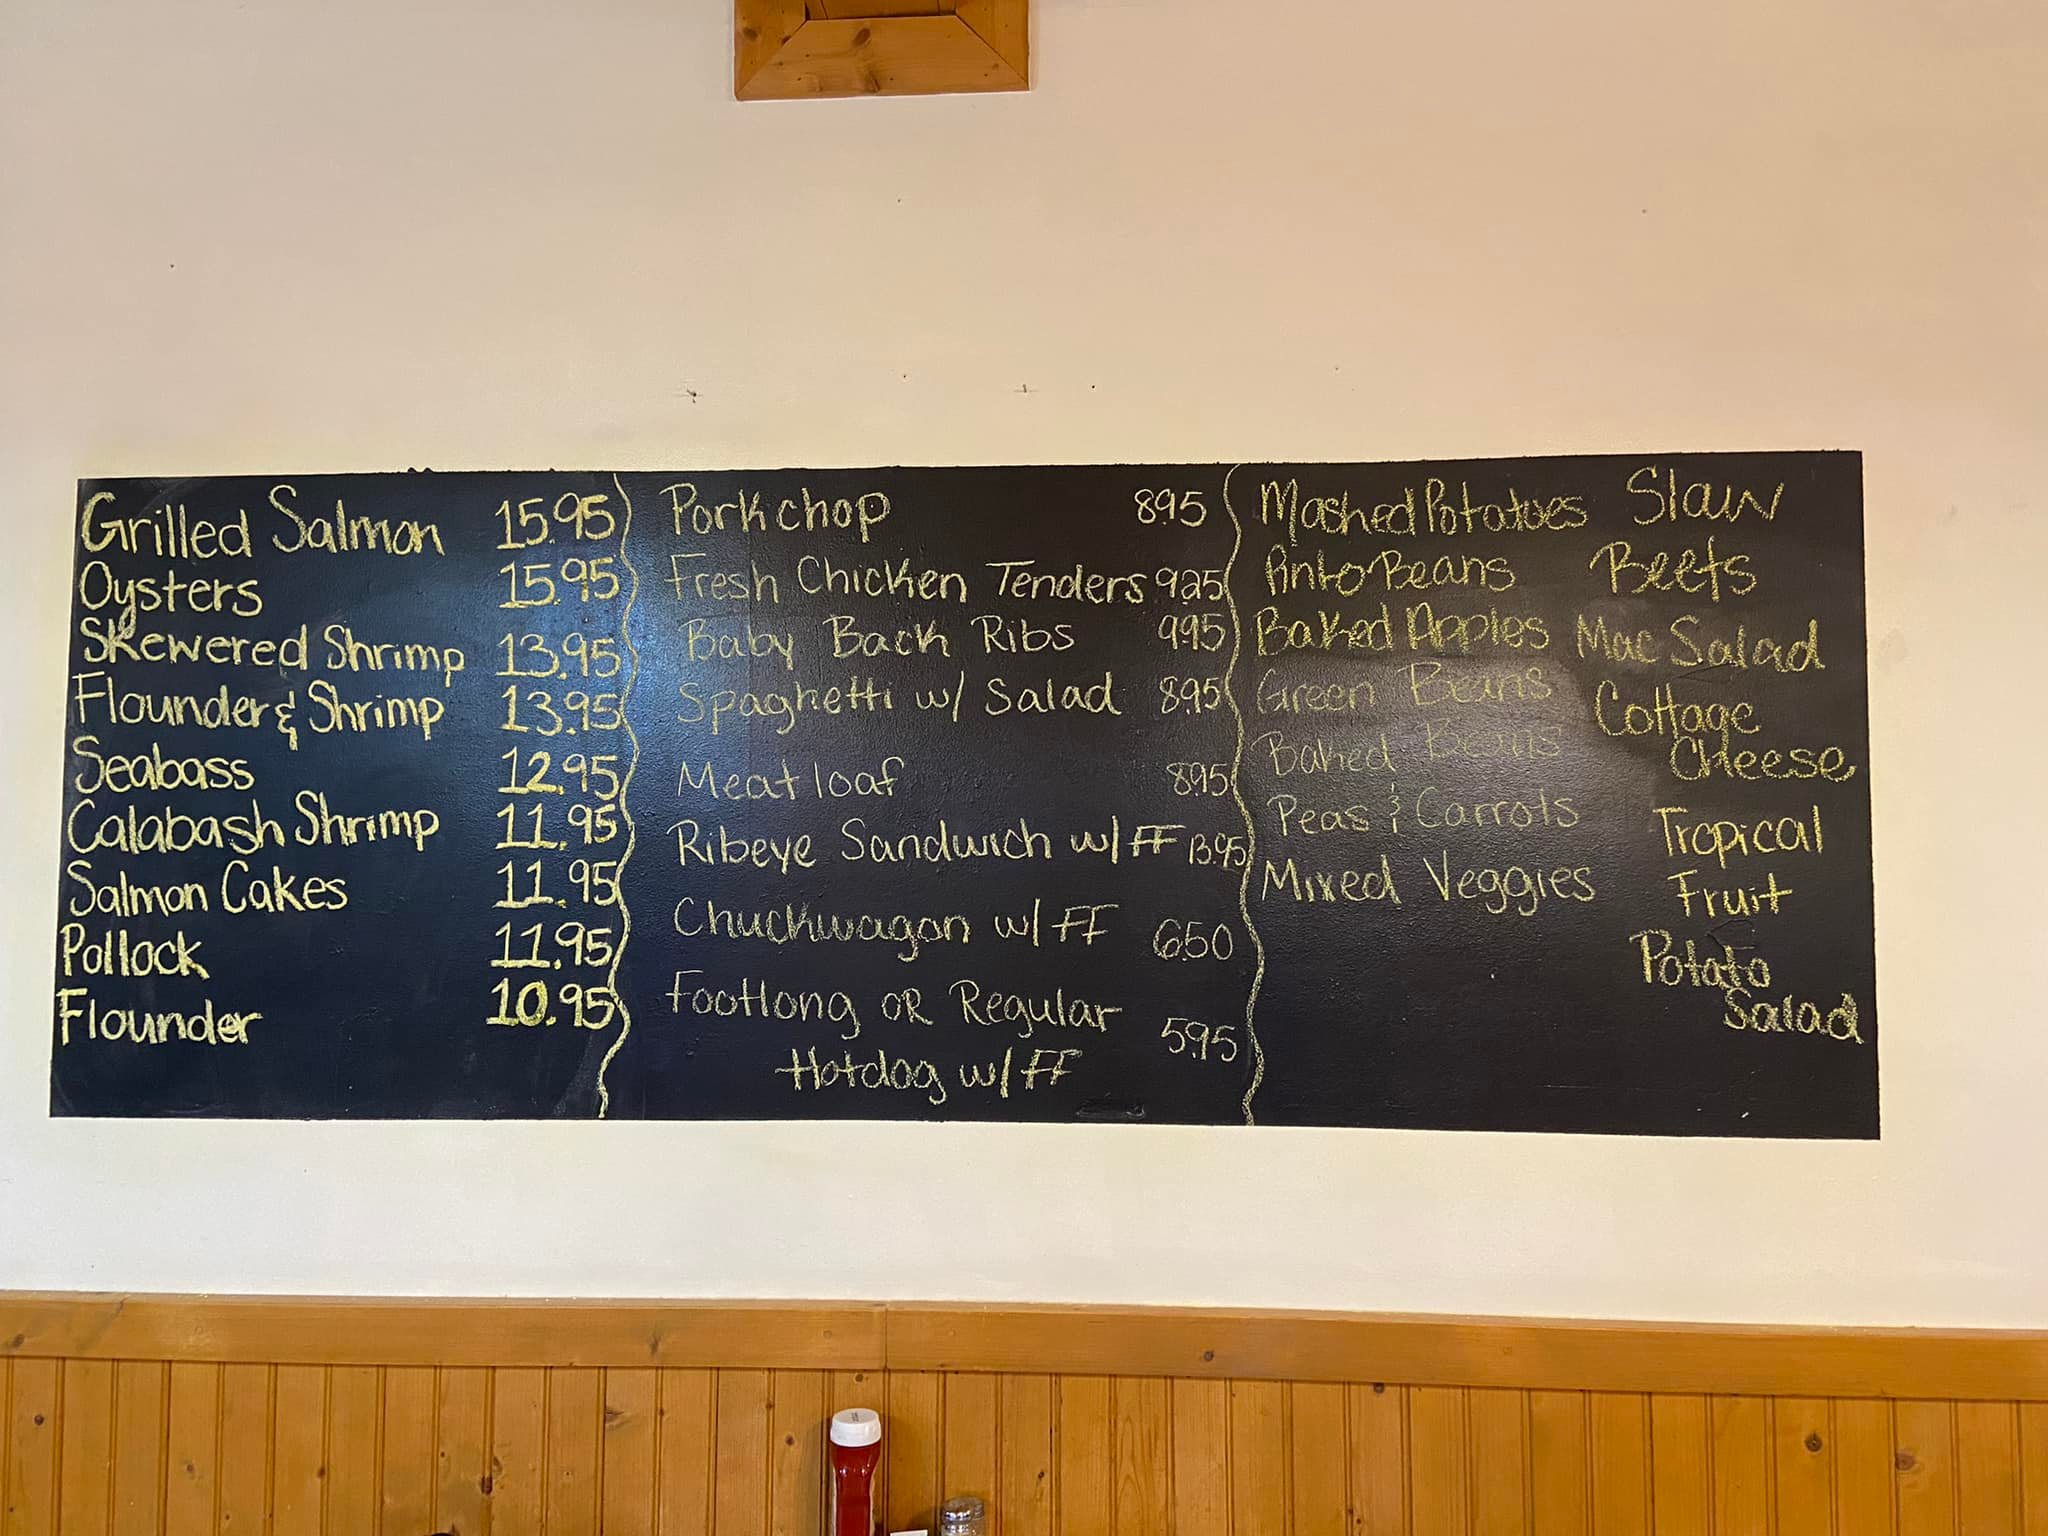 Grilled Salmon 15.95
Oysters 15.95
Skewered Shrimp 13.95
Flounder & Shrimp 13.95
Seabass 12.95
Calabash Shrimp 11.95
Salmon Cakes 11.95
Pollock 11.95
Flounder 10.95
Porkchop 8.95
Fresh Chicken Tenders 9.25
Baby Back Ribs 9.95
Spaghetti w/ Salad 8.95
Meatloaf 8.95
Ribeye Sandwich w/ FF 13.95
Chuckwagon w/ FF 6.50
Footlong OR Regular
Hotdog w/ FF 5.95
Mashed Potatoes
Pinto Beans
Baked Apples
Green Beans
Baked Beans
Peas & Carrots
Mixed Veggies
Slaw
Beets
Mac Salad
Cottage
Cheese
Tropical
Fruit
Potato
Salad